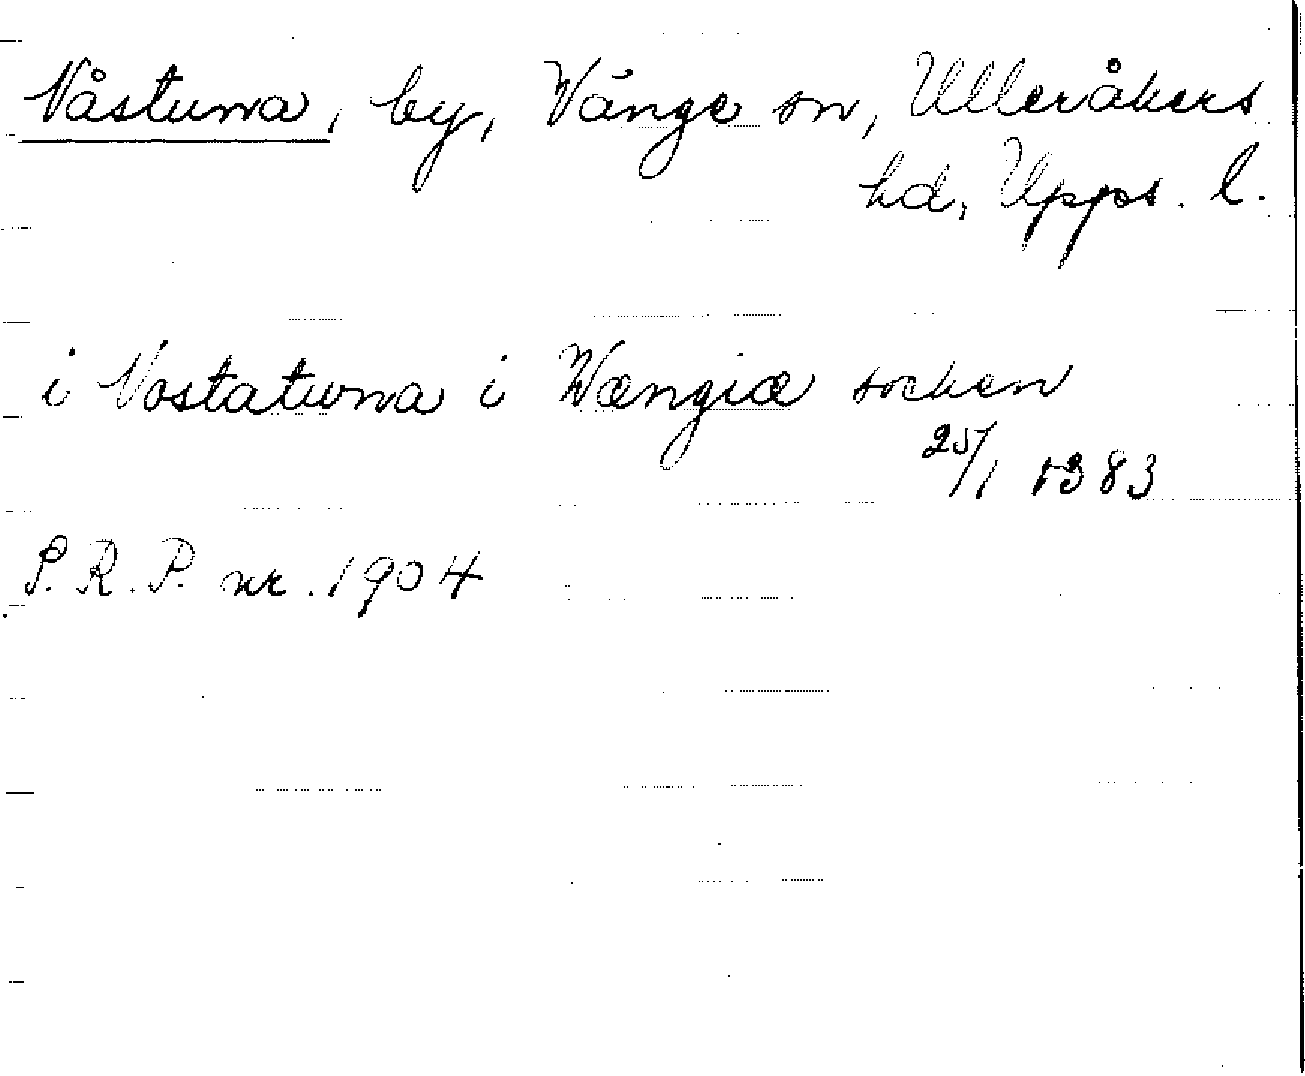 Nåstuna, by, Vänge sn, Ulleråkers
hd, Upps. l.
i Nostatuna i Wængiæ socken
25/1 1383
S.R.P. nr. 1904